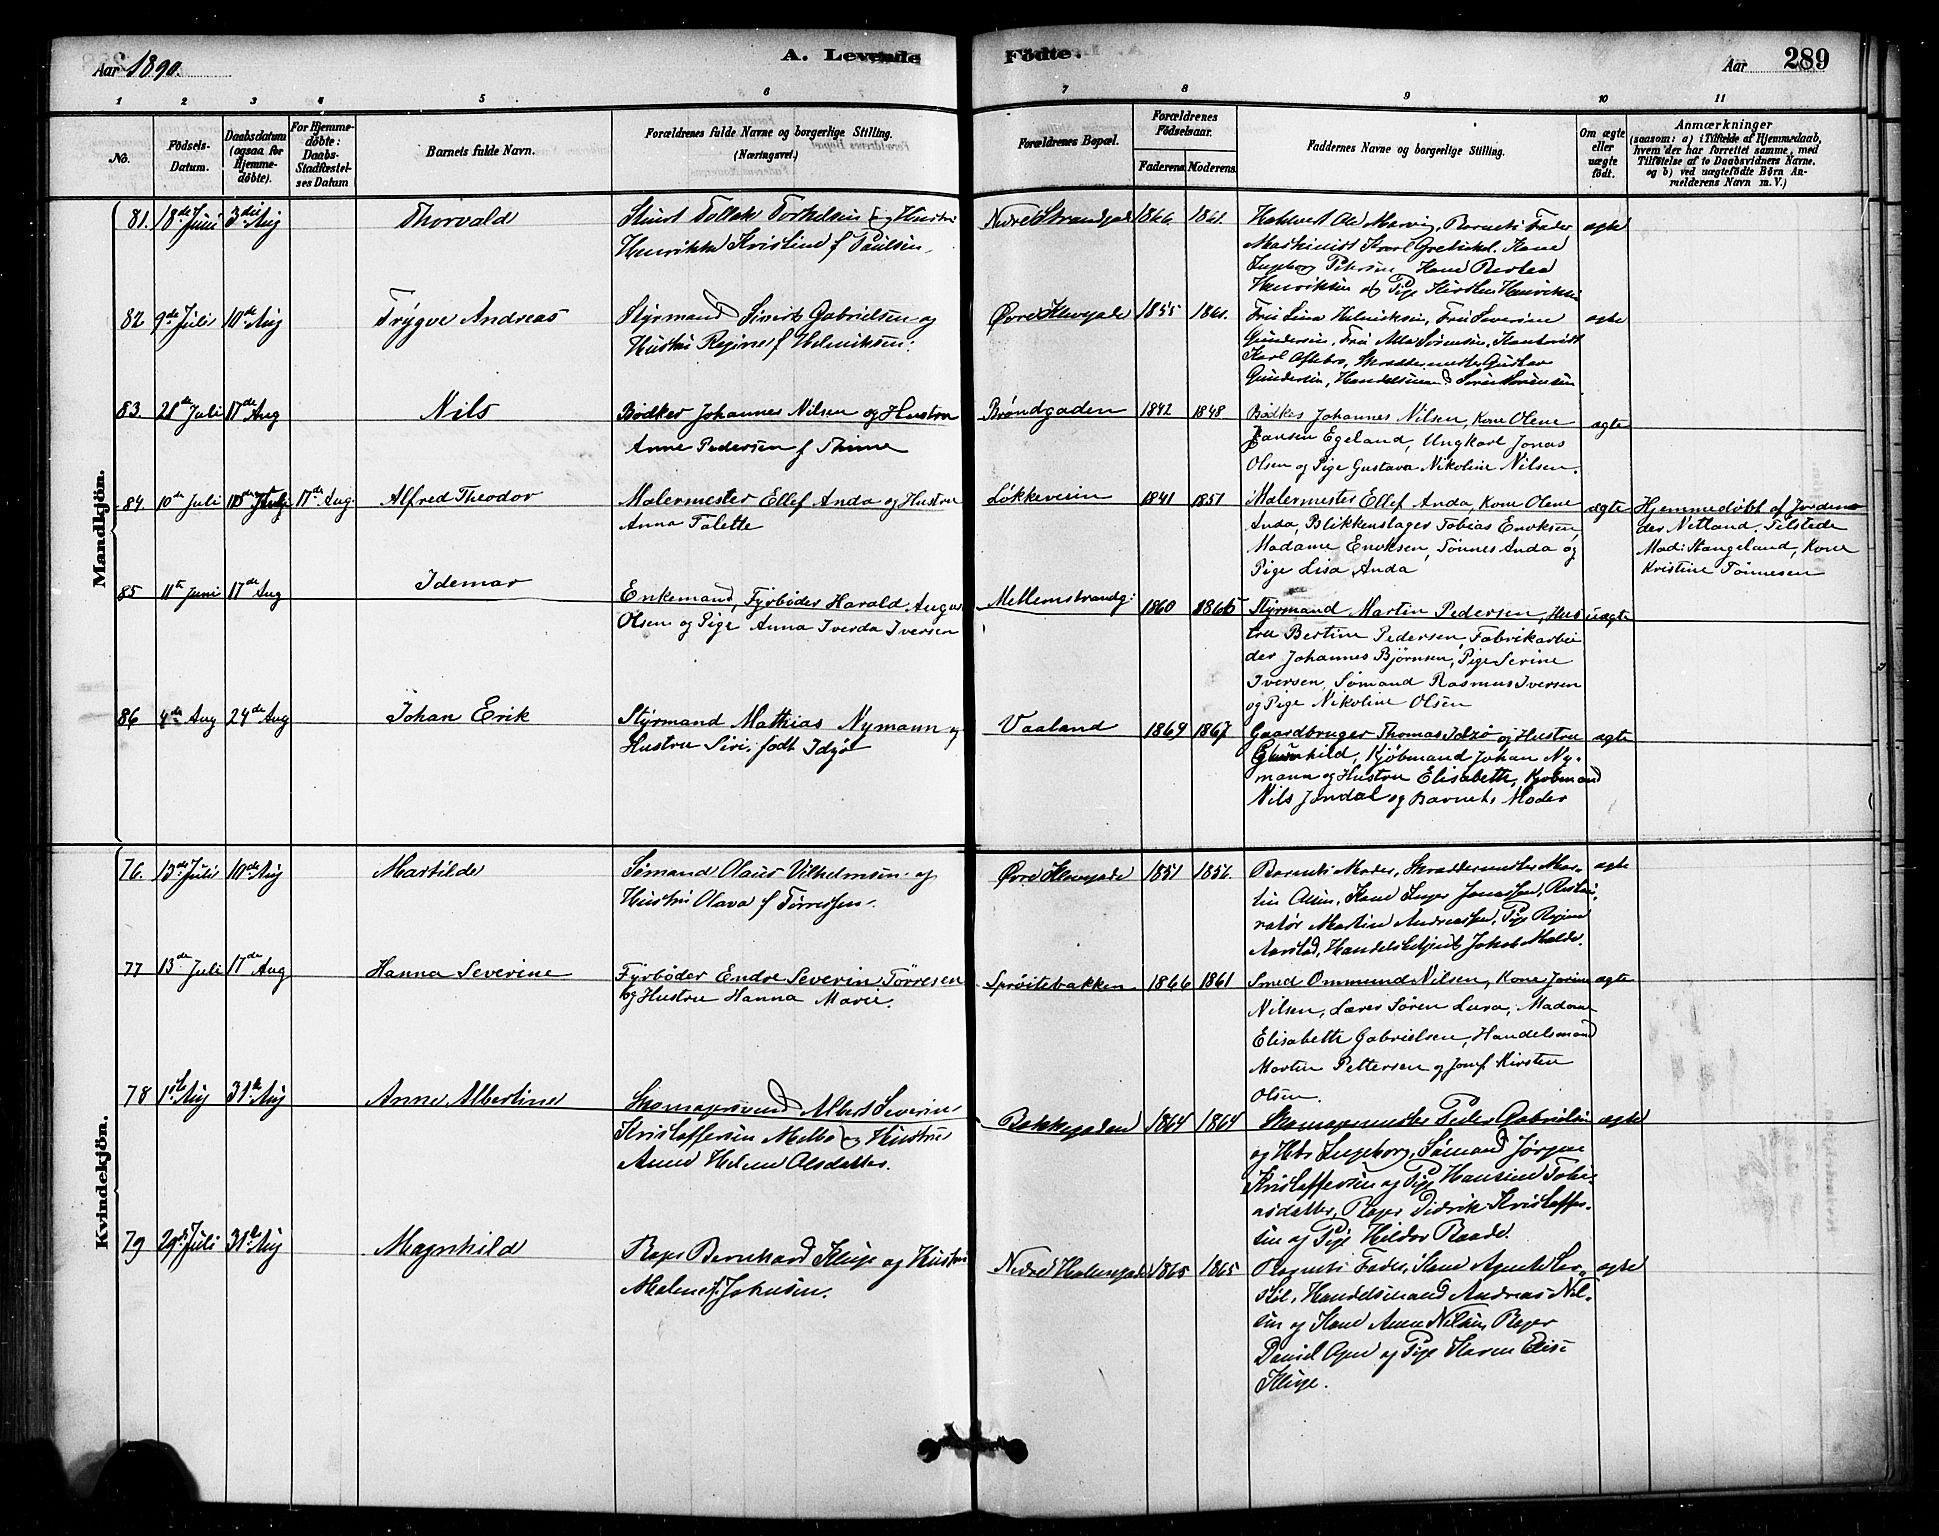 Aar 1890.
A. Levende Födte.
Aar 289
1 2 3 4 5 6 7 8 9 10 11
No.
Födsels-Datum.
Daabsdatum (ogsaa for Hjemme-döbte).
For Hjemme-döbte: Daabs-Stadfæstel-ses Datum
Barnets fulde Navn.
Forældrenes fulde Navne og borgerlige Stilling.
(Næringsvei.)
Forældrenes Bopæl.
Forældrenes Födselsaar.
Faderens. Moderens.
Faddernes Navne og borgerlige Stilling.
Om ægte eller uægte födt.
Anmærkninger
(saasom: a) i Tilfælde af Hjemmedaab, hvem der har forrettet samme, med Tilföielse af to Daabsvidners Navne, og b) ved uægtefödte Börn Anmelderens Navn m. V.)
Mandkjön.
81. 18de Juni 3die Aug Thorvald
Tollak Torkelsen og Hustru
Henrikke Kristine f Paulsen.
Nedre Strandgade 1866. 1861.
Barnets Fader
Maskinist Kone
Ingeborg Petersen, Kone Bertea
Henriksen og Pige Kirsten Henriksen
ægte
82 9de Juli 10de Aug Trygve Andreas
Styrmand Simert Gabrielsen og
Hustru Regine f Helniksen.
Øvre Klevegade 1855 1861.
Fru Lina Helniksen, Fru Severine
Gundersen, Fru Alla Sørensen,
Karl Aftebro, Skræddermester Gustav
Gundersen, Handelsmand Søren Sørensen
ægte
83. 28de Juli 17de Aug Nils
Bødker Johannes Nilsen og Hustru
Anne Pedersen f Thime
Brøndgaden 1842 1848
Bødker Johannes Nilsen, Kone Olene
Jansen Egeland, Ungkarl Jonas
Olsen og Pige Gustava Nikoline Nilsen.
ægte
84. 10de Juli 17de Aug. Alfred Theodor
Malermester Ellef Anda og Hustru
Anna Talette
Løkkeveien 1841 1851
Malermester Ellef Anda, Kone Olene
Anda, Blikkenslager Tobias Enoksen,
Madame Enoksen, Tønnes Anda og
Pige Lisa Anda
ægte
Hjemmedøbt af Jordemo
der Netland. Tilstede
Mad: Stangeland, Kone
Kristine Tønnesen
85 11te Juni 17de Aug Idemar
Enkemand, Fyrbøder Harald August
Olsen og Pige Anna Iverda Iversen
Mellemstrandg: 1860 1866
Styrmand Martin Pedersen, Hus
tru Bertine Pedersen, Fabrikarbei
der Johannes Bjørnsen, Pige Serine
Iversen, Sømand Rasmus Iversen
og Pige Nikoline Olsen
uægte
86 4de Aug 24de Aug Johan Erik
Styrmand Mathias Nymann og
Hustru Siri, født Idzø
Vaaland 1869 1867
Gaardbruger Thomas Idzø og Hustru
Gunhild, Kjøbmand Johan Ny-
mann og Hustru Elisabeth, Kjøbmand
Nils Jøndal og Barnets Moder
ægte
Kvindekjön.
76. 13de Juli 10de Aug Mathilde
Sømand Olaus Vilhelmsen og
Hustru Olava f Tørressen.
Øvre Klevegade 1851 1856.
Barnets Moder, Skræddermester Mar-
tin Olsen, Kone Inger Jonassen, Restau-
ratør Martin Andreassen, Pige Regine
Aarstad, Handelsbetjent Jakob Malde.
ægte
77 13de Juli 17de Aug Hanna Severine
Fyrbøder Endre Severin Tørresen
og Hustru Hanna Marie.
Sprøitebakken 1866 1861
Smed Ommund Nilsen, Kone Jorine
Nilsen, Lærer Søren Lura, Madam
Elisabeth Gabrielsen, Handelsmand
Martin Pettersen og Jomf Kirsten
Olsen.
ægte
78 1ste Aug 31te Aug Anne Albertine
Skomagersvend Albert Severin
Kristoffersen Melbø og Hustru
Anne Helene Olsdatter.
Bakkegaden 1864 1864
Skomagermester Peder Gabrielsen
og Ingeborg, Sømand Jørgen
Kristoffersen og Pige Hansine Tobi-
asdatter, Bager Didrik Kristoffer-
sen og Pige Hilda Raade.
ægte
79 29de Juli 31te Aug Magnhild
Bager Bernhard Kluge og Hustru
Malene f. Johnsen.
Nedre Holmegade 1865 1865
Barnets Fader, Kone Agnete
Handelsmand Andreas Nil-
sen og Kone Anne Nilsen, Bager
Daniel og Pige Karen Elise
Kluge.
ægte